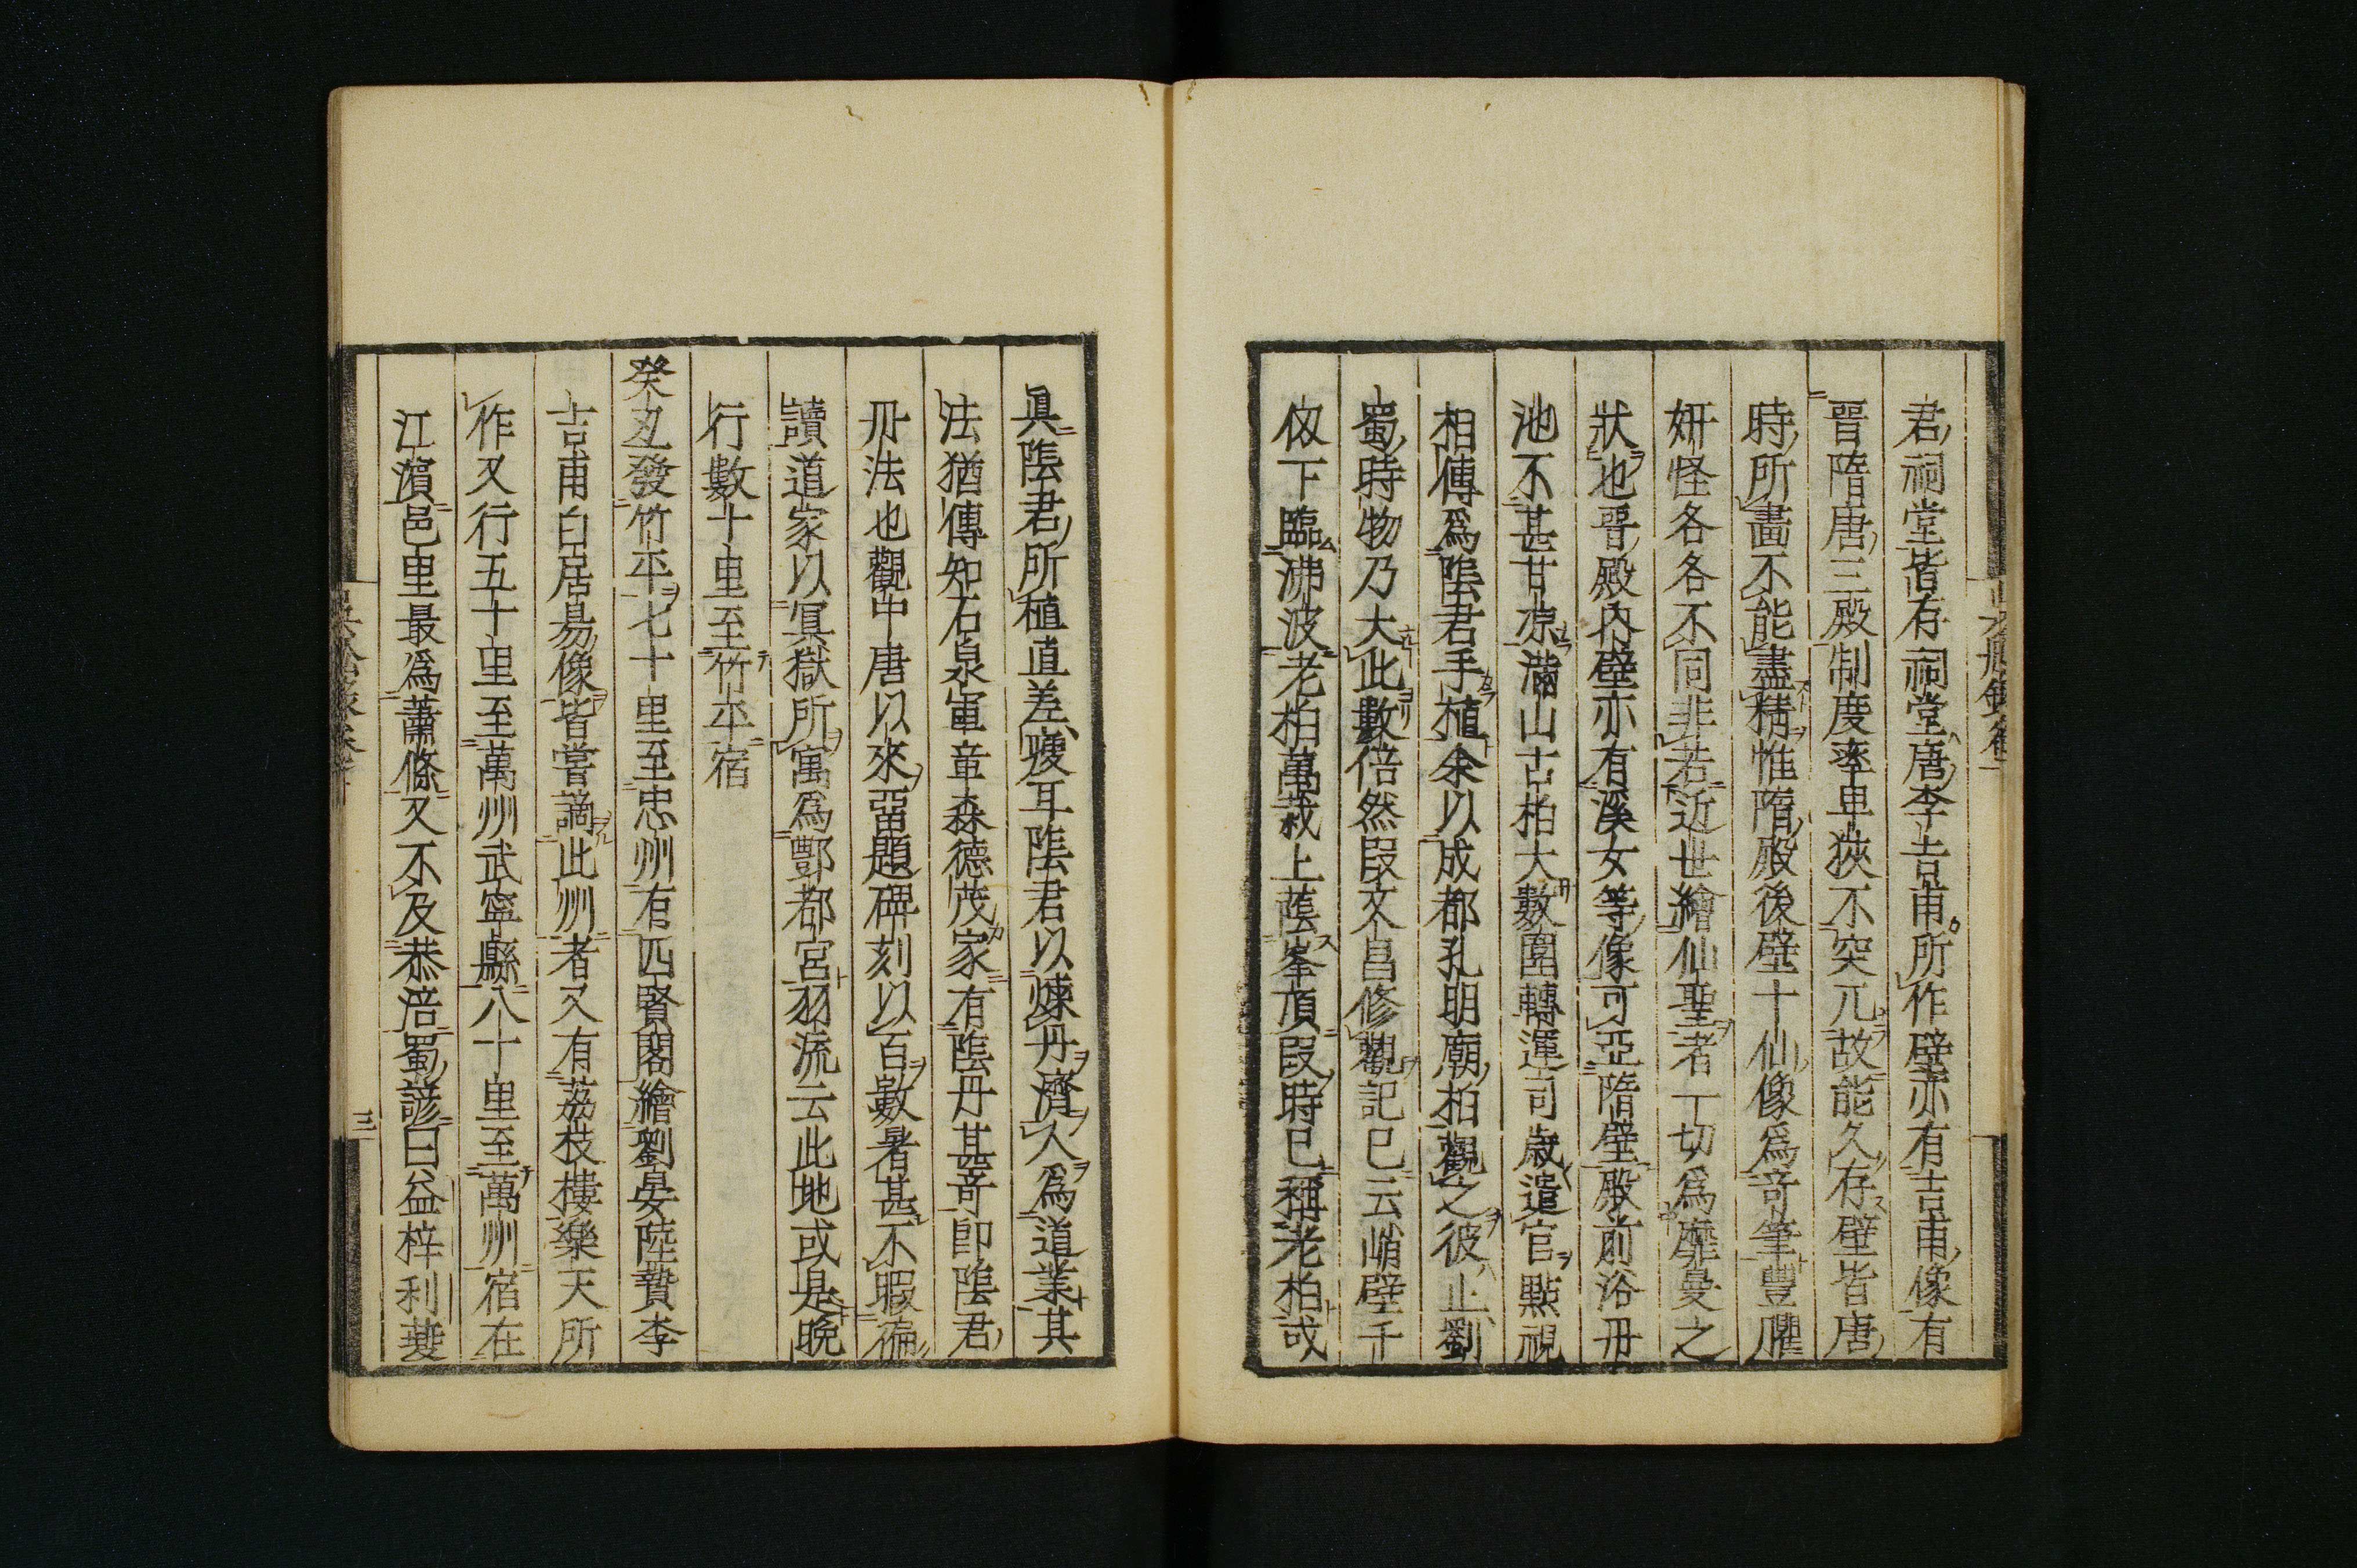 君祠堂皆存祠堂唐李吉甫所作壁亦有吉甫像有
晋隋唐三殿制度率卑狹不突兀故能久存壁皆唐
時所畫不能盡精惟隋殿後壁十仙像爲竒筆豐臞
妍怪各各不同非若近世繪仙聖者一切爲靡曼之
狀也晋殿內壁亦有溪女等像可亞隋壁殿前浴丹
池不甚甘凉滿山古柏大數圍轉運司歲遣官點視
相傳爲隂君手植余以成都孔明廟柏觀之彼止劉
蜀時物乃大此數倍然叚文昌修觀記已云峭壁千
仭下臨沸波老柏萬栽上蔭峯頂叚時已稱老柏或
真隂君所植直差瘦耳隂君以煉丹濟人爲道業其
法猶傳知石泉軍章森德茂家有隂丹甚竒卽隂君
丹法也觀中唐以來留題碑刻以百數暑甚不暇徧
讀道家以冥獄所寓爲酆都宮羽流云此地或是晚
行數十里至竹平宿
癸丑發竹平七十里至忠州有四賢閣繪劉晏陸贄李
吉甫白居易像皆嘗謫此州者又有荔枝樓樂天所
作又行五十里至萬州武寧縣八十里至萬州宿在
江濵邑里最爲蕭條又不及恭涪蜀諺曰益梓利夔
三